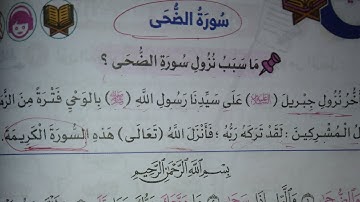 سُورَةُ الضُّحَى
مَا سَبَبُ نُزُولِ سُورَةِ الضُّحَى ؟
خُّرُ نُزُولِ جِبْرِيلَ (عليه السلام) عَلَى سَيِّدِنَا رَسُولِ اللَّهِ (ﷺ) بِالْوَحْيِ فَتْرَةً مِنَ الزَّمَ
لَ الْمُشْرِكِينَ : لَقَدْ تَرَكَهُ رَبُّهُ ؛ فَأَنْزَلَ اللَّهُ (تَعَالَى) هَذِهِ السُّورَةَ الْكَرِيمَةَ.
بِسْمِ اللَّهِ الرَّحْمَنِ الرَّحِيمِ